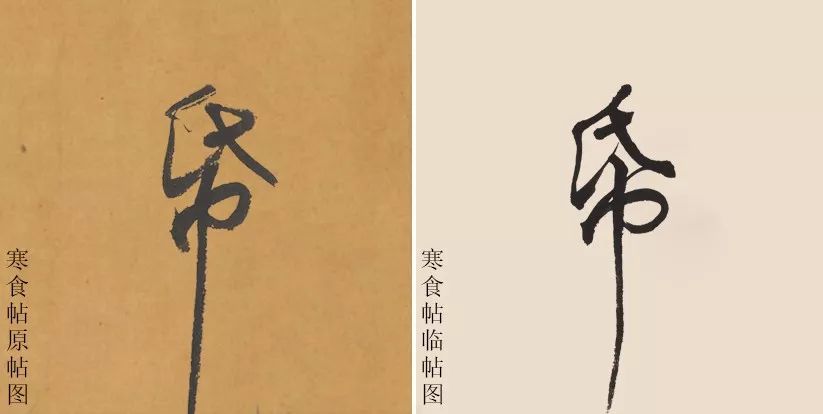 帋
寒食帖原帖图
帋
寒食帖临帖图